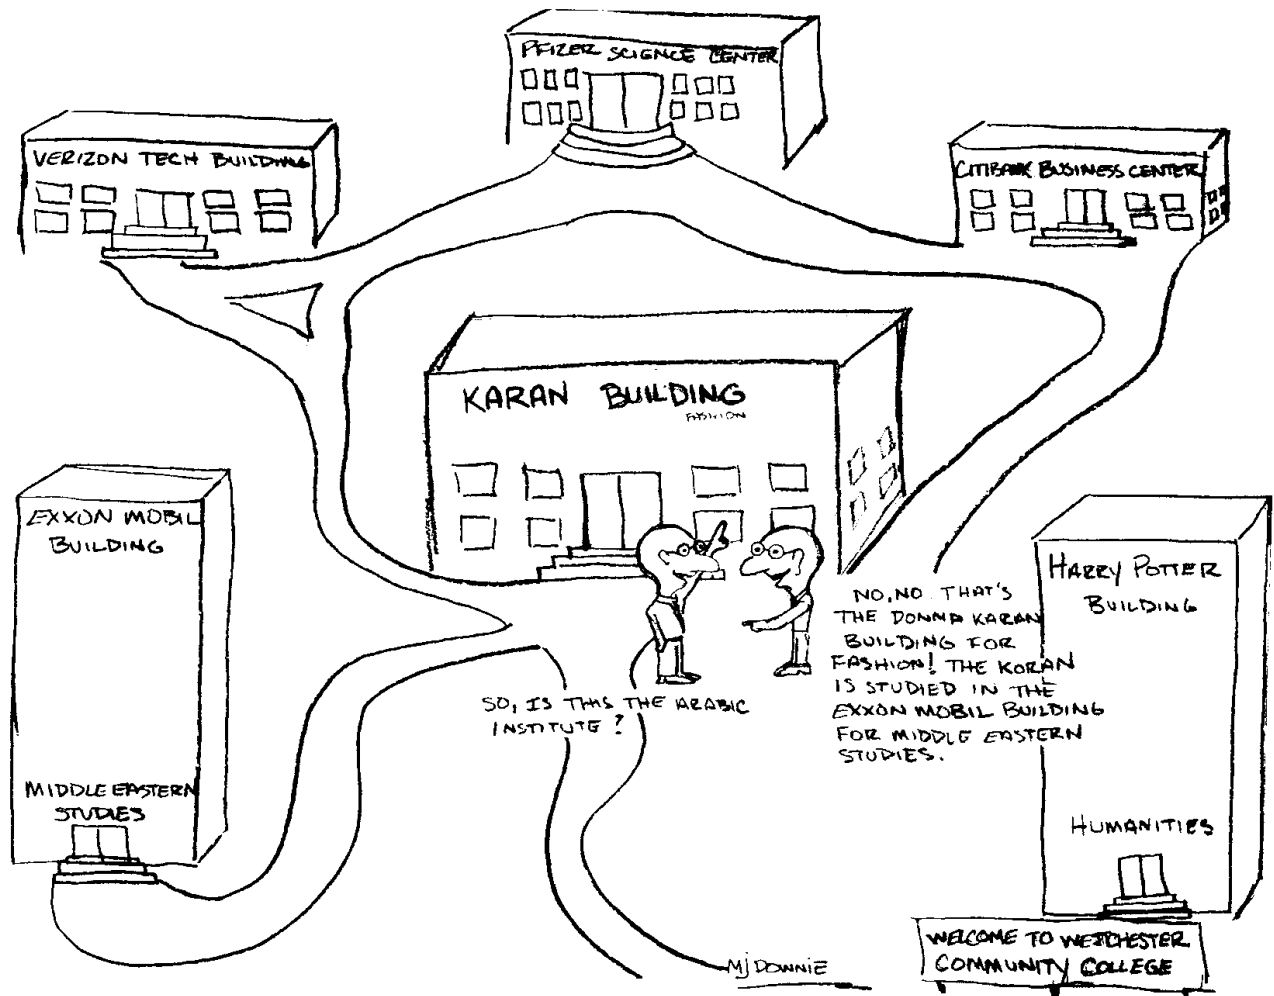 PFIZER SCIENCE CENTER
VERIZON TECH BUILDING
CITIBANK BUSINESS CENTER
KARAN BUILDING
FASHION
EXXON MOBIL
BUILDING
MIDDLE EASTERN
STUDIES
HARRY POTTER
BUILDING
HUMANITIES
SO, IS THIS THE ARABIC
INSTITUTE?
NO, NO. THAT'S
THE DONNA KARAN
BUILDING FOR
FASHION! THE KORAN
IS STUDIED IN THE
EXXON MOBIL BUILDING
FOR MIDDLE EASTERN
STUDIES.
WELCOME TO WESTCHESTER
COMMUNITY COLLEGE
MJ DOWNIE